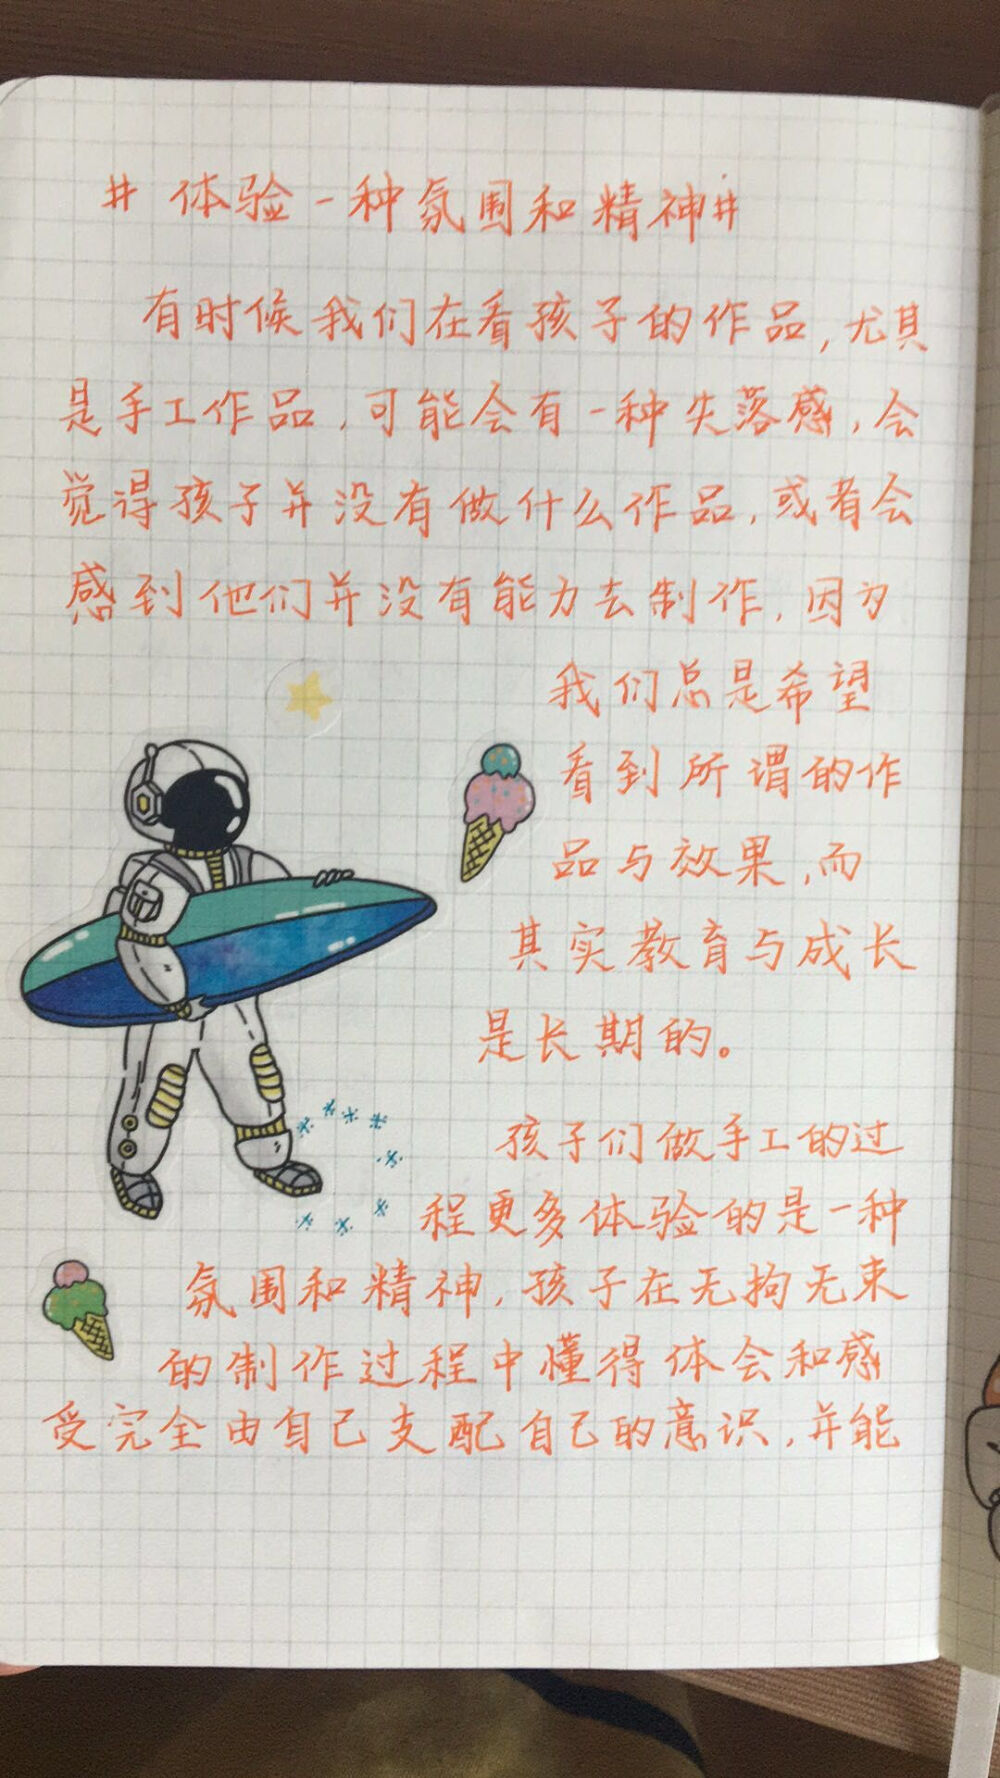 #体验一种氛围和精神#
有时候我们在看孩子的作品,尤其
是手工作品,可能会有一种失落感,会
觉得孩子并没有做什么作品,或者会
感到他们并没有能力去制作,因为
我们总是希望
看到所谓的作
品与效果,而
其实教育与成长
是长期的。
孩子们做手工的过
程更多体验的是一种
氛围和精神,孩子在无拘无束
的制作过程中懂得体会和感
受完全由自己支配自己的意识,并能